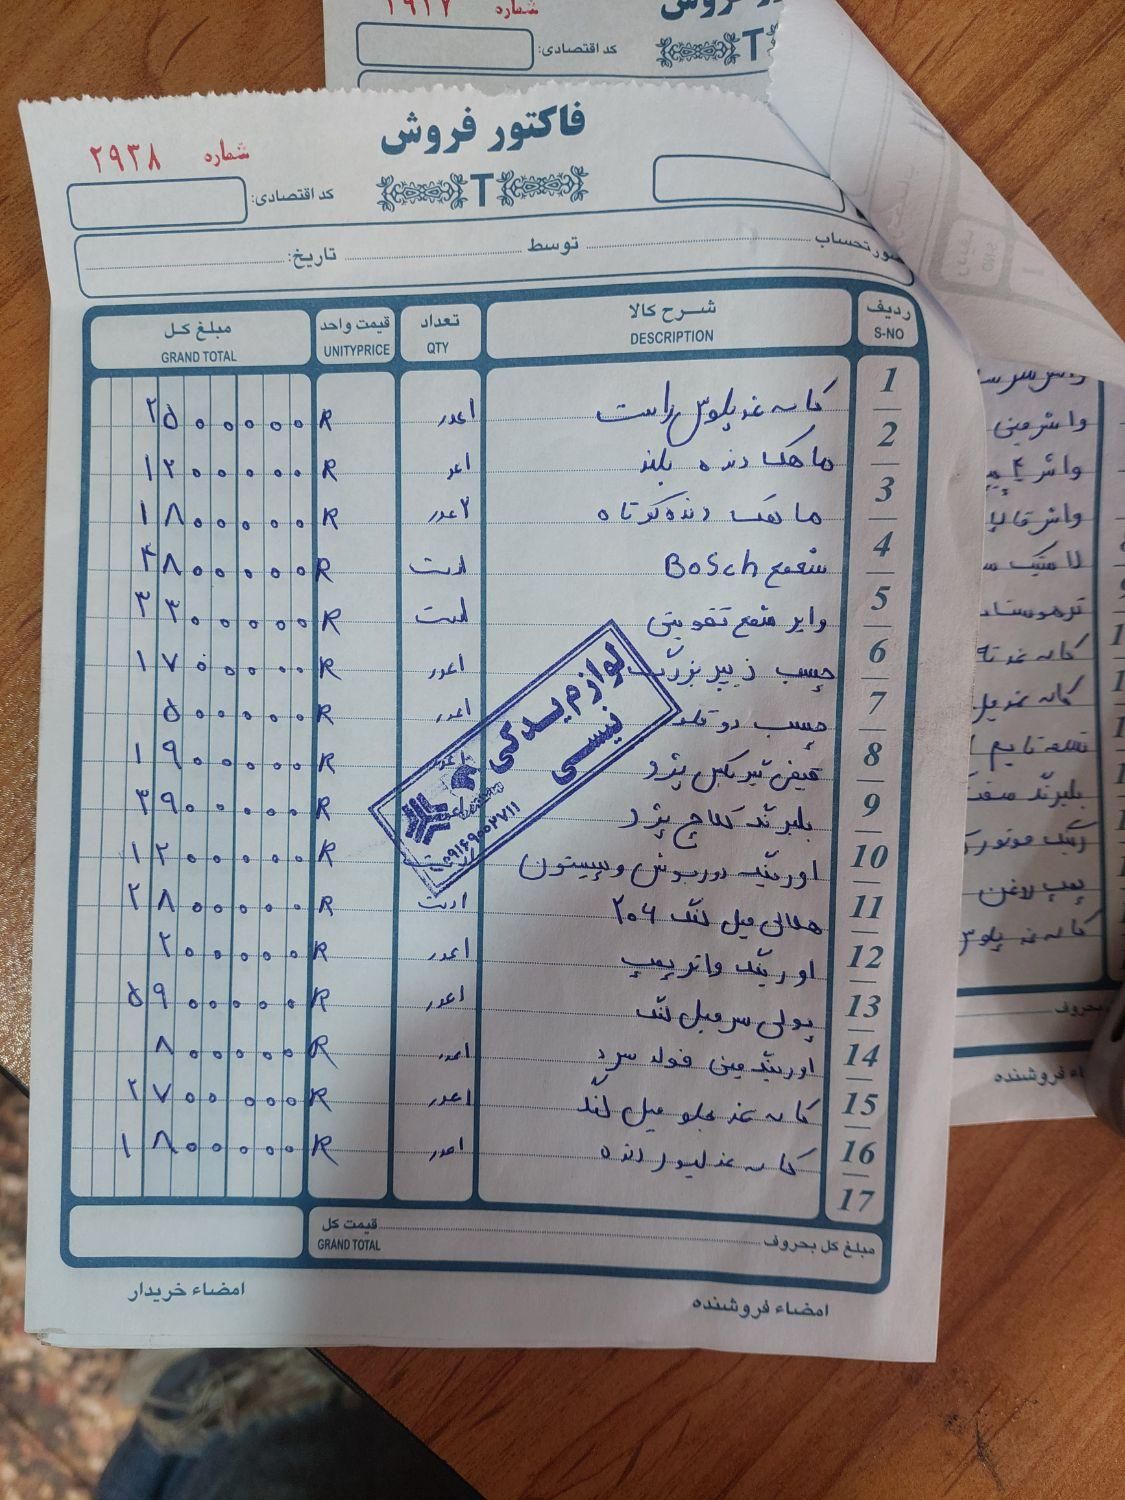 شماره ۲۹۳۷
کد اقتصادی:
T
فاکتور فروش
شماره ۲۹۳۸
T
کد اقتصادی:
صورتحساب توسط تاریخ:
ردیف شــرح کالا تعداد قیمت واحد مبلغ کل
S-NO DESCRIPTION QTY UNITYPRICE GRAND TOTAL
1 کاسه نمد پلوس راست ۱عدد R ۲۵۰۰۰۰۰
2 ماهک دنده بلند ۱عدد R ۱۲۰۰۰۰۰
3 ماهک دنده کوتاه ۲عدد R ۱۸۰۰۰۰۰
4 شمع Bosch ۱ست R ۴۸۰۰۰۰۰
5 وایر شمع تقویتی ۱ست R ۳۳۰۰۰۰۰
6 چسب ۱عدد R ۱۷۰۰۰۰۰
7 چسب دوقلو ۱عدد R ۵۰۰۰۰۰
8 پژو ۱عدد R ۱۹۰۰۰۰۰
9 بلبرینگ کلاچ پژو R ۳۹۰۰۰۰۰
10 اورینگ دور بوش و پیستون R ۱۲۰۰۰۰۰
11 هلالی میل لنگ ۲۰۶ ۱ست R ۲۸۰۰۰۰۰
12 اورینگ واتر پمپ ۱عدد R ۲۰۰۰۰۰
13 پولی سر میل لنگ ۱عدد R ۵۹۰۰۰۰۰
14 اورینگ مینی فولد سرد ۱عدد R ۸۰۰۰۰۰
15 کاسه نمد جلو میل لنگ ۱عدد R ۲۷۰۰۰۰۰
16 کاسه نمد لیور دنده ۱عدد R ۱۸۰۰۰۰۰
17
لوازم یدکی
نیسی
۰۹۱۶۹۰۰۲۷۱۱
مبلغ کل بحروف قیمت کل
GRAND TOTAL
امضاء فروشنده امضاء خریدار
واشر مینی
واشر ۴
کاسه نمد
تسمه تایم
بلبرینگ
رینگ موتور
پمپ روغن
کاسه نمد پلوس
بحروف
فروشنده